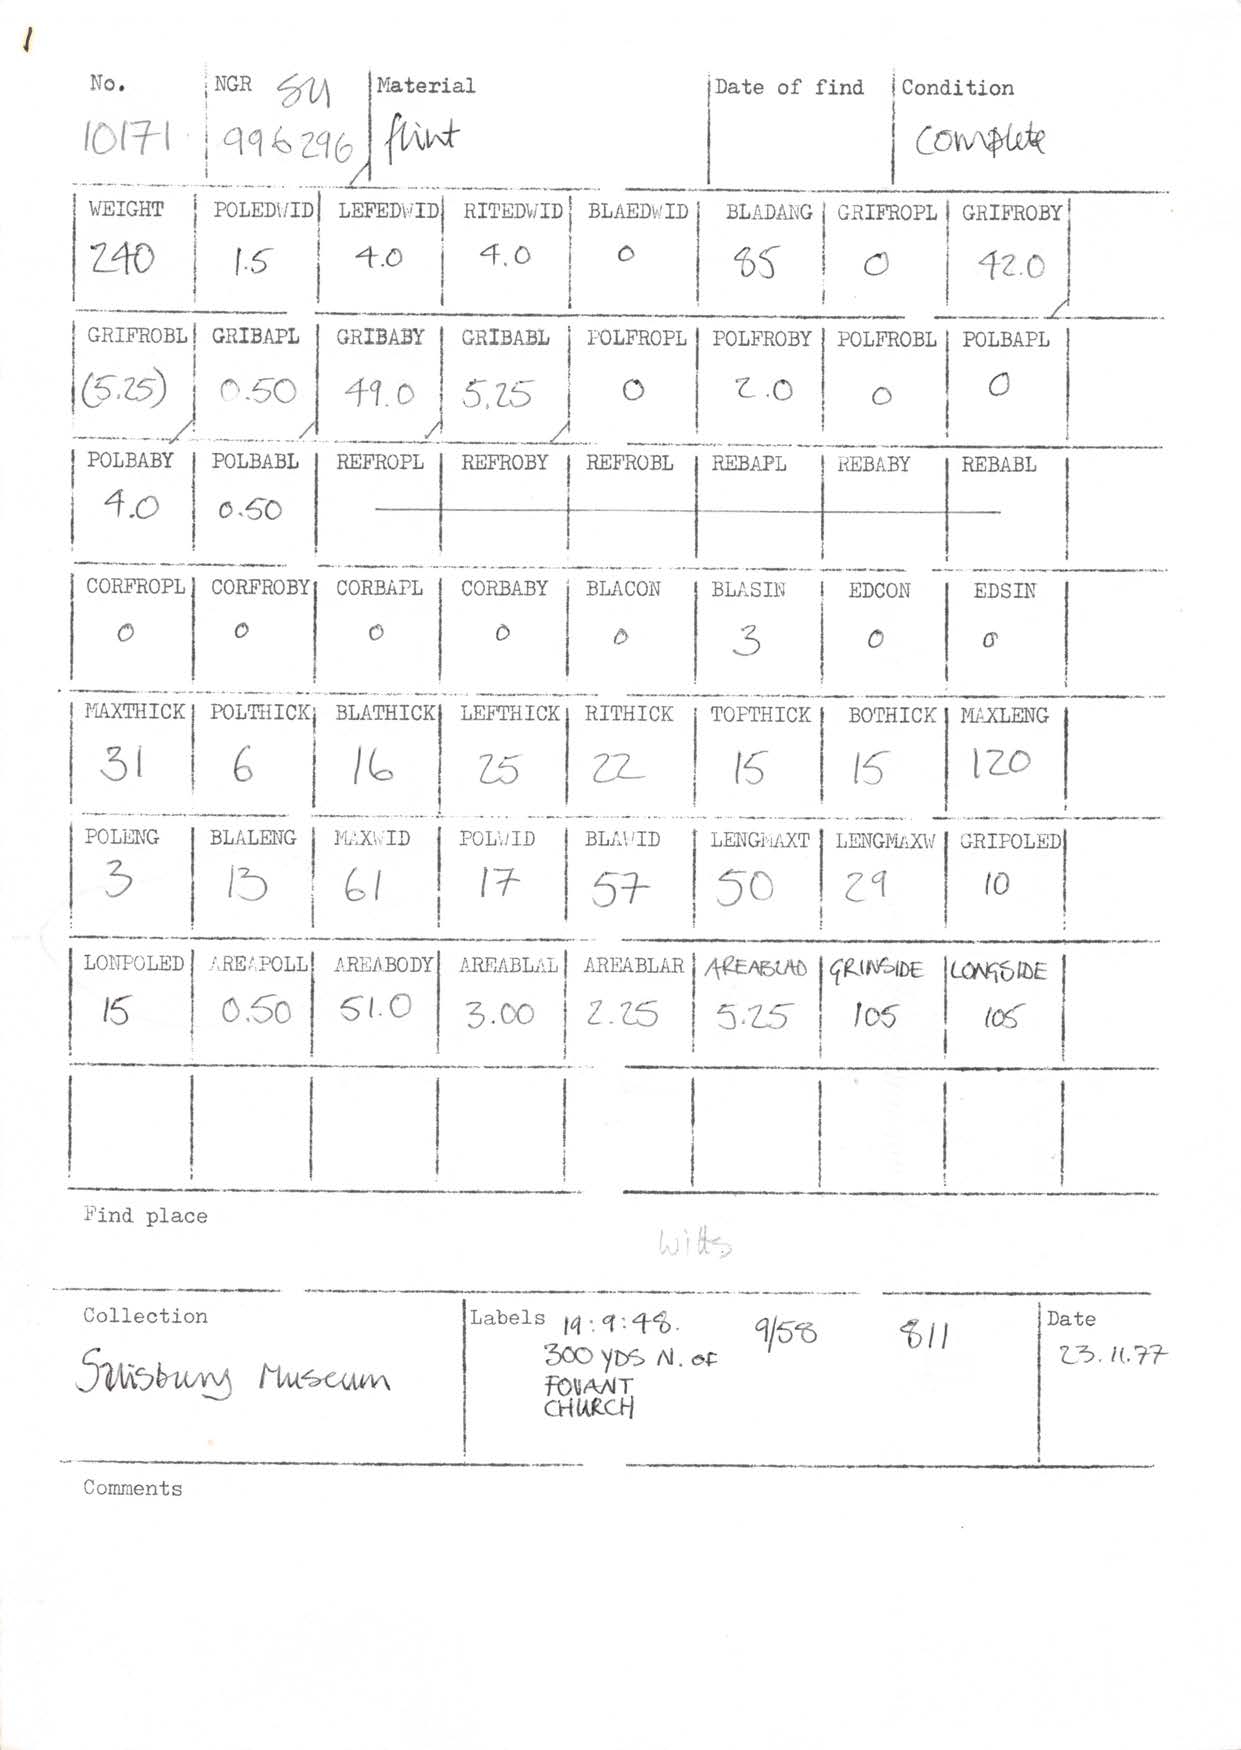 1
No. NGR SU Material Date of find Condition
10171 996296 flint complete
WEIGHT POLEDWID LEFEDWID RITEDWID BLAEDWID BLADANG GRIFROPL GRIFROBY
240 1.5 4.0 4.0 0 85 0 42.0
GRIFROBL GRIBAPL GRIBABY GRIBABL POLFROPL POLFROBY POLFROBL POLBAPL
(5.25) 0.50 49.0 5.25 0 2.0 0 0
POLBABY POLBABL REFROPL REFROBY REFROBL REBAPL REBABY REBABL
4.0 0.50
CORFROPL CORFROBY CORBAPL CORBABY BLACON BLASIN EDCON EDSIN
0 0 0 0 0 3 0 0
MAXTHICK POLTHICK BLATHICK LEFTHICK RITHICK TOPTHICK BOTHICK MAXLENG
31 6 16 25 22 15 15 120
POLENG BLALENG MAXWID POLWID BLAWID LENGMAXT LENGMAXW GRIPOLED
3 13 61 17 57 50 29 10
LONPOLED AREAPOLL AREABODY AREABLAL AREABLAR AREABLAD GRINSIDE LONGSIDE
15 0.50 51.0 3.00 2.25 5.25 105 105
Find place
Wilts
Collection Labels 19:9:48. 9/58 811 Date
Salisbury Museum 300 YDS N. OF 23.11.77
FOVANT
CHURCH
Comments